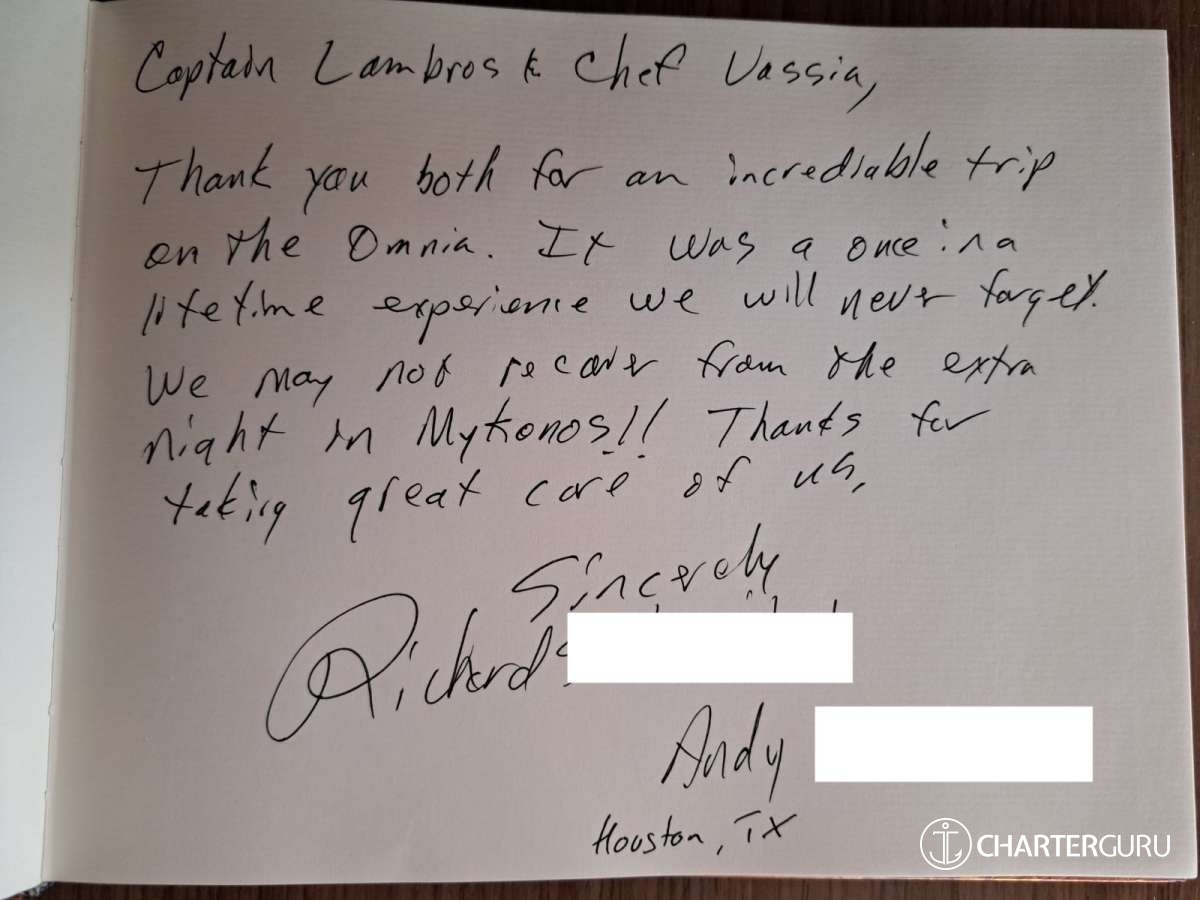 Captain Lambros & Chef Vassia,
Thank you both for an incrediable trip
on the Omnia. It was a once in a
lifetime experience we will never forget.
We may not recover from the extra
night in Mykonos!! Thanks for
taking great care of us,
Sincerely
Richard
Andy
Houston, TX
CHARTERGURU